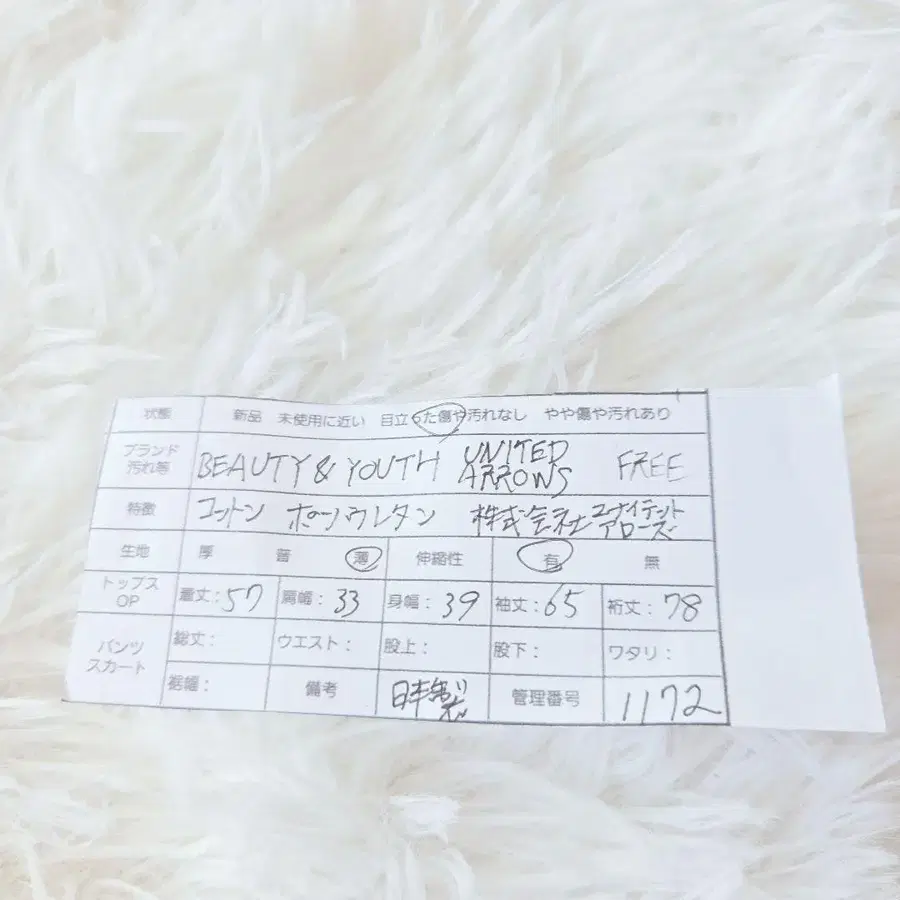 状態 新品 未使用に近い 目立った傷や汚れなし やや傷や汚れあり
ブランド 汚れ等 BEAUTY & YOUTH UNITED ARROWS FREE
特徴 コットン ポリウレタン 株式会社ユナイテットアローズ
生地 厚 普 薄 伸縮性 有 無
トップス OP 着丈:57 肩幅:33 身幅:39 袖丈:65 裄丈:78
パンツ スカート 総丈: ウエスト: 股上: 股下: ワタリ:
裾幅: 備考 日本製 管理番号 1172